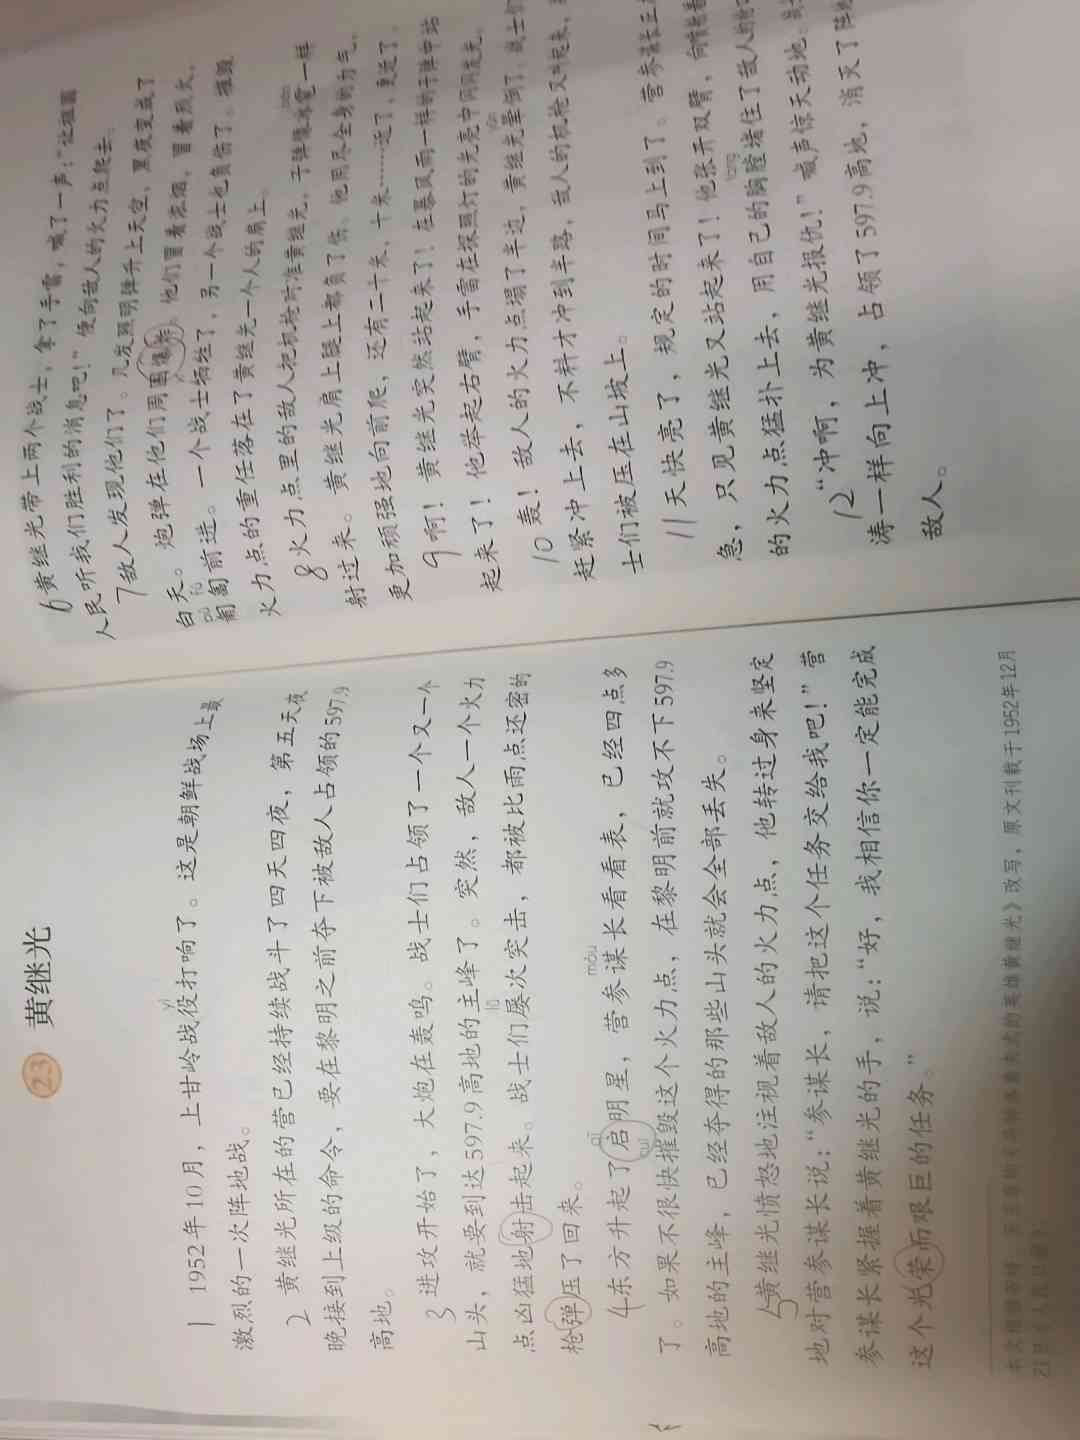 23 黄继光
yì
1 1952年10月，上甘岭战役打响了。这是朝鲜战场上最
激烈的一次阵地战。
2 黄继光所在的营已经持续战斗了四天四夜，第五天夜
晚接到上级的命令，要在黎明之前夺下被敌人占领的597.9
高地。
3 进攻开始了，大炮在轰鸣。战士们占领了一个又一个
山头，就要到达597.9高地的主峰了。突然，敌人一个火力
lǚ
点凶猛地射击起来。战士们屡次突击，都被比雨点还密的
枪弹压了回来。
móu
4 东方升起了启明星，营参谋长看看表，已经四点多
cuī
了。如果不很快摧毁这个火力点，在黎明前就攻不下597.9
高地的主峰，已经夺得的那些山头就会全部丢失。
5 黄继光愤怒地注视着敌人的火力点，他转过身来坚定
地对营参谋长说：“参谋长，请把这个任务交给我吧！”营
参谋长紧握着黄继光的手，说：“好，我相信你一定能完成
这个光荣而艰巨的任务。”
英雄黄继光》改写，原文刊载于1952年12月
21日《人民日报》。
6 黄继光带上两个战士，拿了手雷，喊了一声：“让祖国
人民听我们胜利的消息吧！”便向敌人的火力点爬去。
7 敌人发现他们了。几发照明弹升上天空，黑夜变成了
白天。炮弹在他们周围爆炸。他们冒着浓烟，冒着烈火，
pú fú
匍匐前进。一个战士牺牲了，另一个战士也负伤了。摧毁
火力点的重任落在了黄继光一个人的肩上。
báo
8 火力点里的敌人把机枪对准黄继光，子弹像冰雹一样
射过来。黄继光肩上腿上都负了伤。他用尽全身的力气，
更加顽强地向前爬，还有二十米，十米……近了，更近了。
9 啊！黄继光突然站起来了！在暴风雨一样的子弹中站
起来了！他举起右臂，手雷在探照灯的光亮中闪闪发光。
yūn
10 轰！敌人的火力点塌了半边，黄继光晕倒了。战士们
赶紧冲上去，不料才冲到半路，敌人的机枪又叫起来，
士们被压在山坡上。
11 天快亮了，规定的时间马上到了。营参谋长正
急，只见黄继光又站起来了！他张开双臂，向
táng
的火力点猛扑上去，用自己的胸膛堵住了敌人的
12 “冲啊，为黄继光报仇！”喊声惊天动地。
涛一样向上冲，占领了597.9高地，消灭了阵地
敌人。